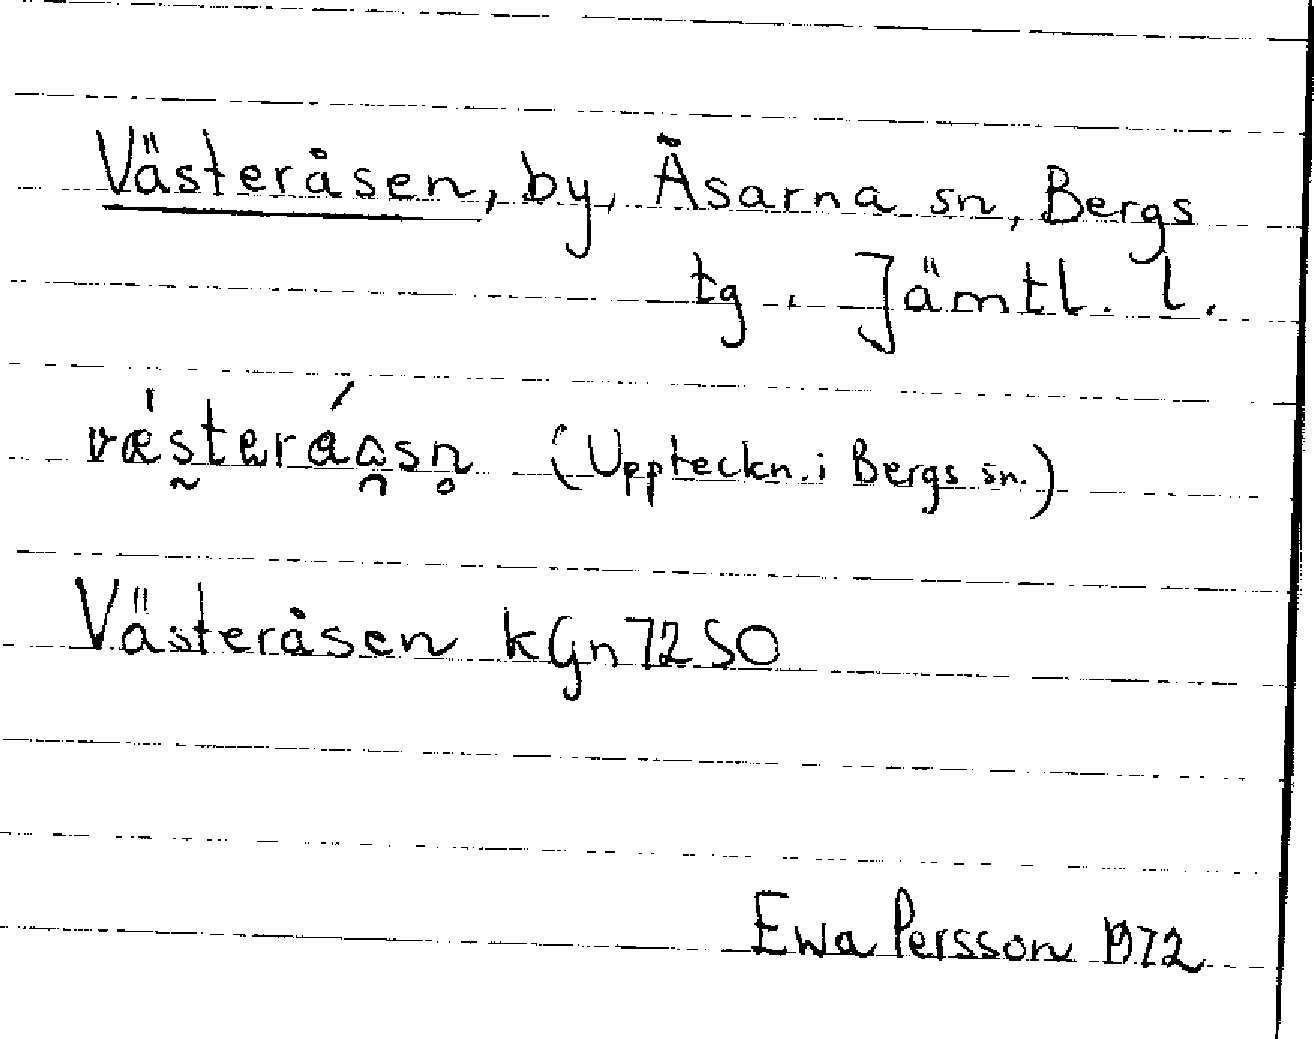 Västeråsen, by, Åsarna sn, Bergs
tg. Jämtl. l.
(Uppteckn. i Bergs sn.)
Västeråsen kGn 72 SO
Ewa Persson 1972